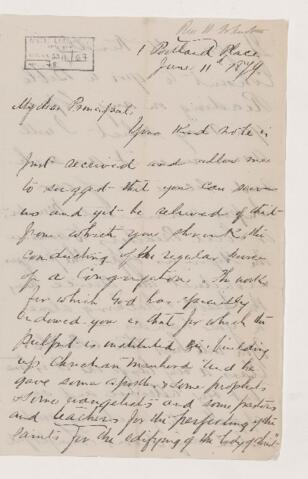 Rev. W. Johnston
1 Portland Place
June 11th 1879.
My dear Principal
Your kind note is
just received and allow me
to suggest that you can serve
us and yet be relieved of that
from which you shrink the
conducting of the regular service
of a Congregation. The work
for which God has specially
endowed you is that for which the
Pulpit is instituted viz. building
up Christian Manhood "and he
gave some apostles & some prophets
& some evangelists and some pastors
and teachers for the perfecting of the
saints for the edifying of the body of Christ